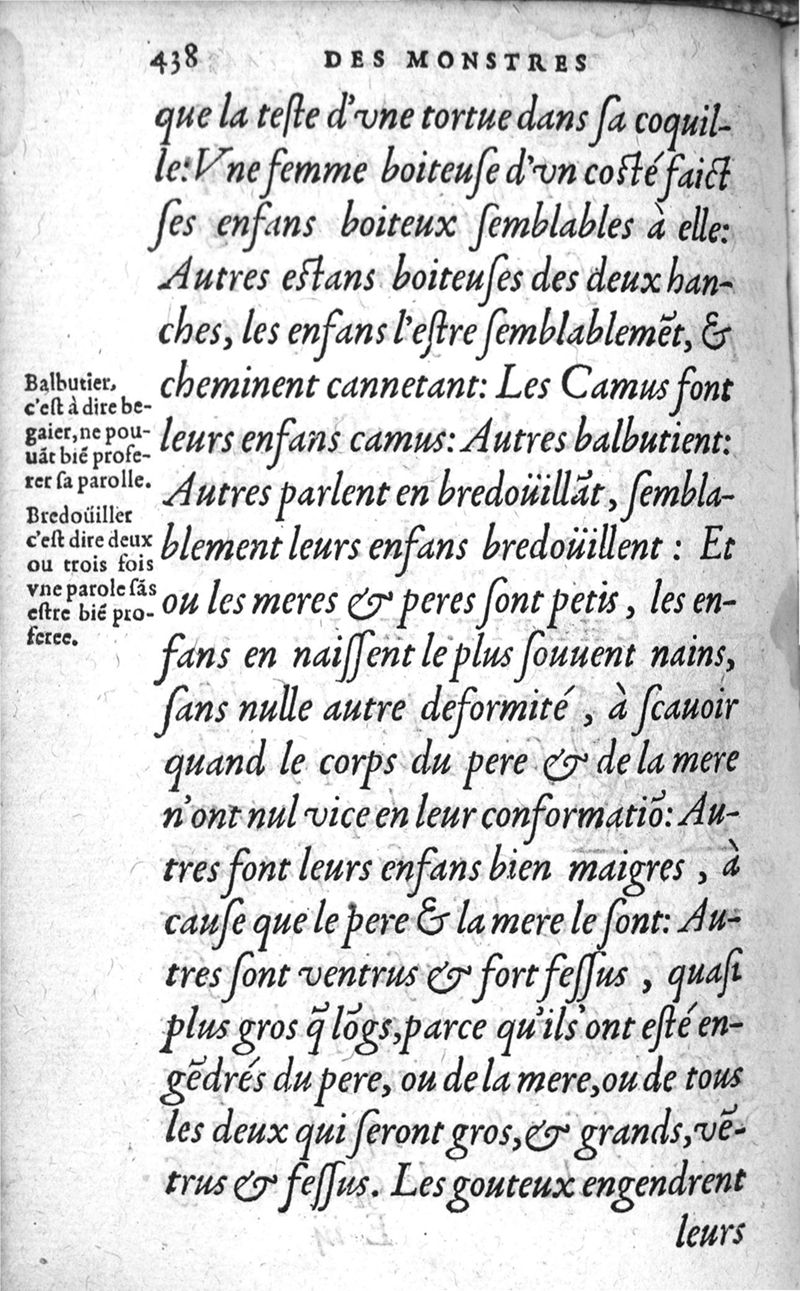 438 DES MONSTRES
que la teſte d'vne tortue dans ſa coquil-
le: Vne femme boiteuſe d'vn coſté faict
ſes enfans boiteux ſemblables à elle:
Autres eſtans boiteuſes des deux han-
ches, les enfans l'eſtre ſemblablemẽt, &
cheminent cannetant: Les Camus font
leurs enfans camus: Autres balbutient:
Autres parlent en bredoüillãt, ſembla-
blement leurs enfans bredoüillent : Et
ou les meres & peres ſont petis, les en-
fans en naiſſent le plus ſouuent nains,
ſans nulle autre deformité, à ſcauoir
quand le corps du pere & de la mere
n'ont nul vice en leur conformatiõ: Au-
tres font leurs enfans bien maigres, à
cauſe que le pere & la mere le ſont: Au-
tres ſont ventrus & fort feſſus, quaſi
plus gros q̃ lõgs, parce qu'ils ont eſté en-
gẽdrés du pere, ou de la mere, ou de tous
les deux qui ſeront gros, & grands, vẽ-
trus & feſſus. Les gouteux engendrent
leurs
Balbutier,
c'eſt à dire be-
gaier, ne pou-
uãt biẽ profe-
rer ſa parolle.
Bredoüiller
c'eſt dire deux
ou trois fois
vne parole ſãs
eſtre biẽ pro-
feree.